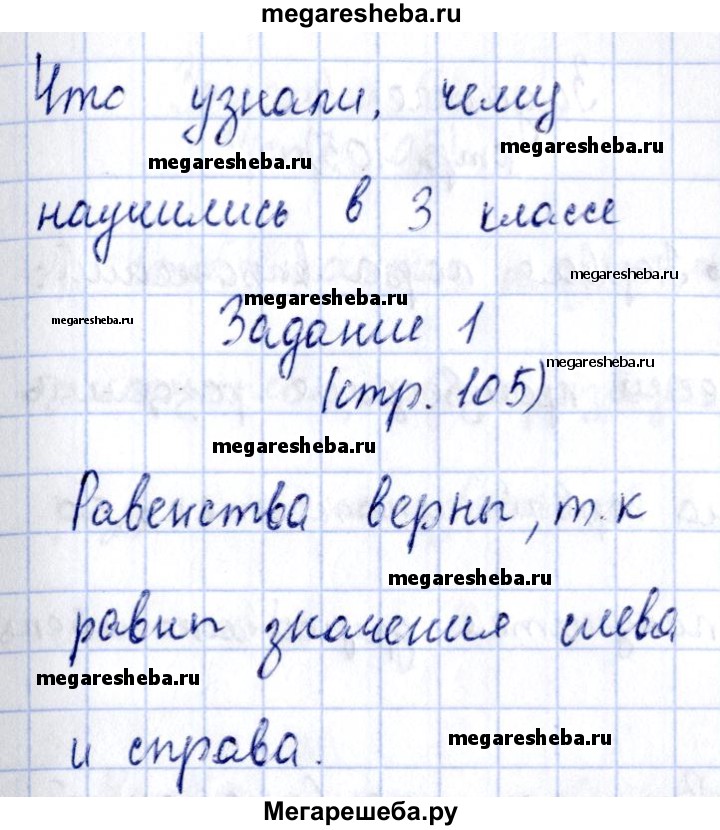 megaresheba.ru
Что узнали, чему
megaresheba.ru
megaresheba.ru
научились в 3 классе
megaresheba.ru
megaresheba.ru
megaresheba.ru
Задание 1
megaresheba.ru
(стр. 105)
megaresheba.ru
Равенства верны, т.к
megaresheba.ru
равны значения слева
megaresheba.ru
и справа.
megaresheba.ru
Мегарешеба.ру